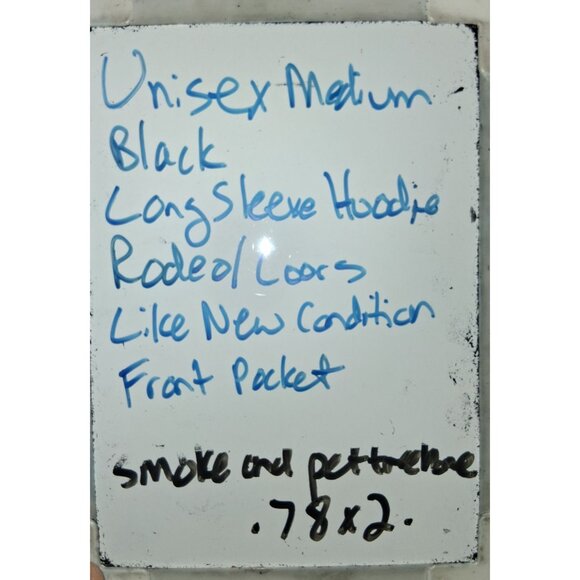 Unisex Medium
Black
Long Sleeve Hoodie
Rodeo/Coors
Like New Condition
Front Pocket
smoke and pet free home
.78x2.